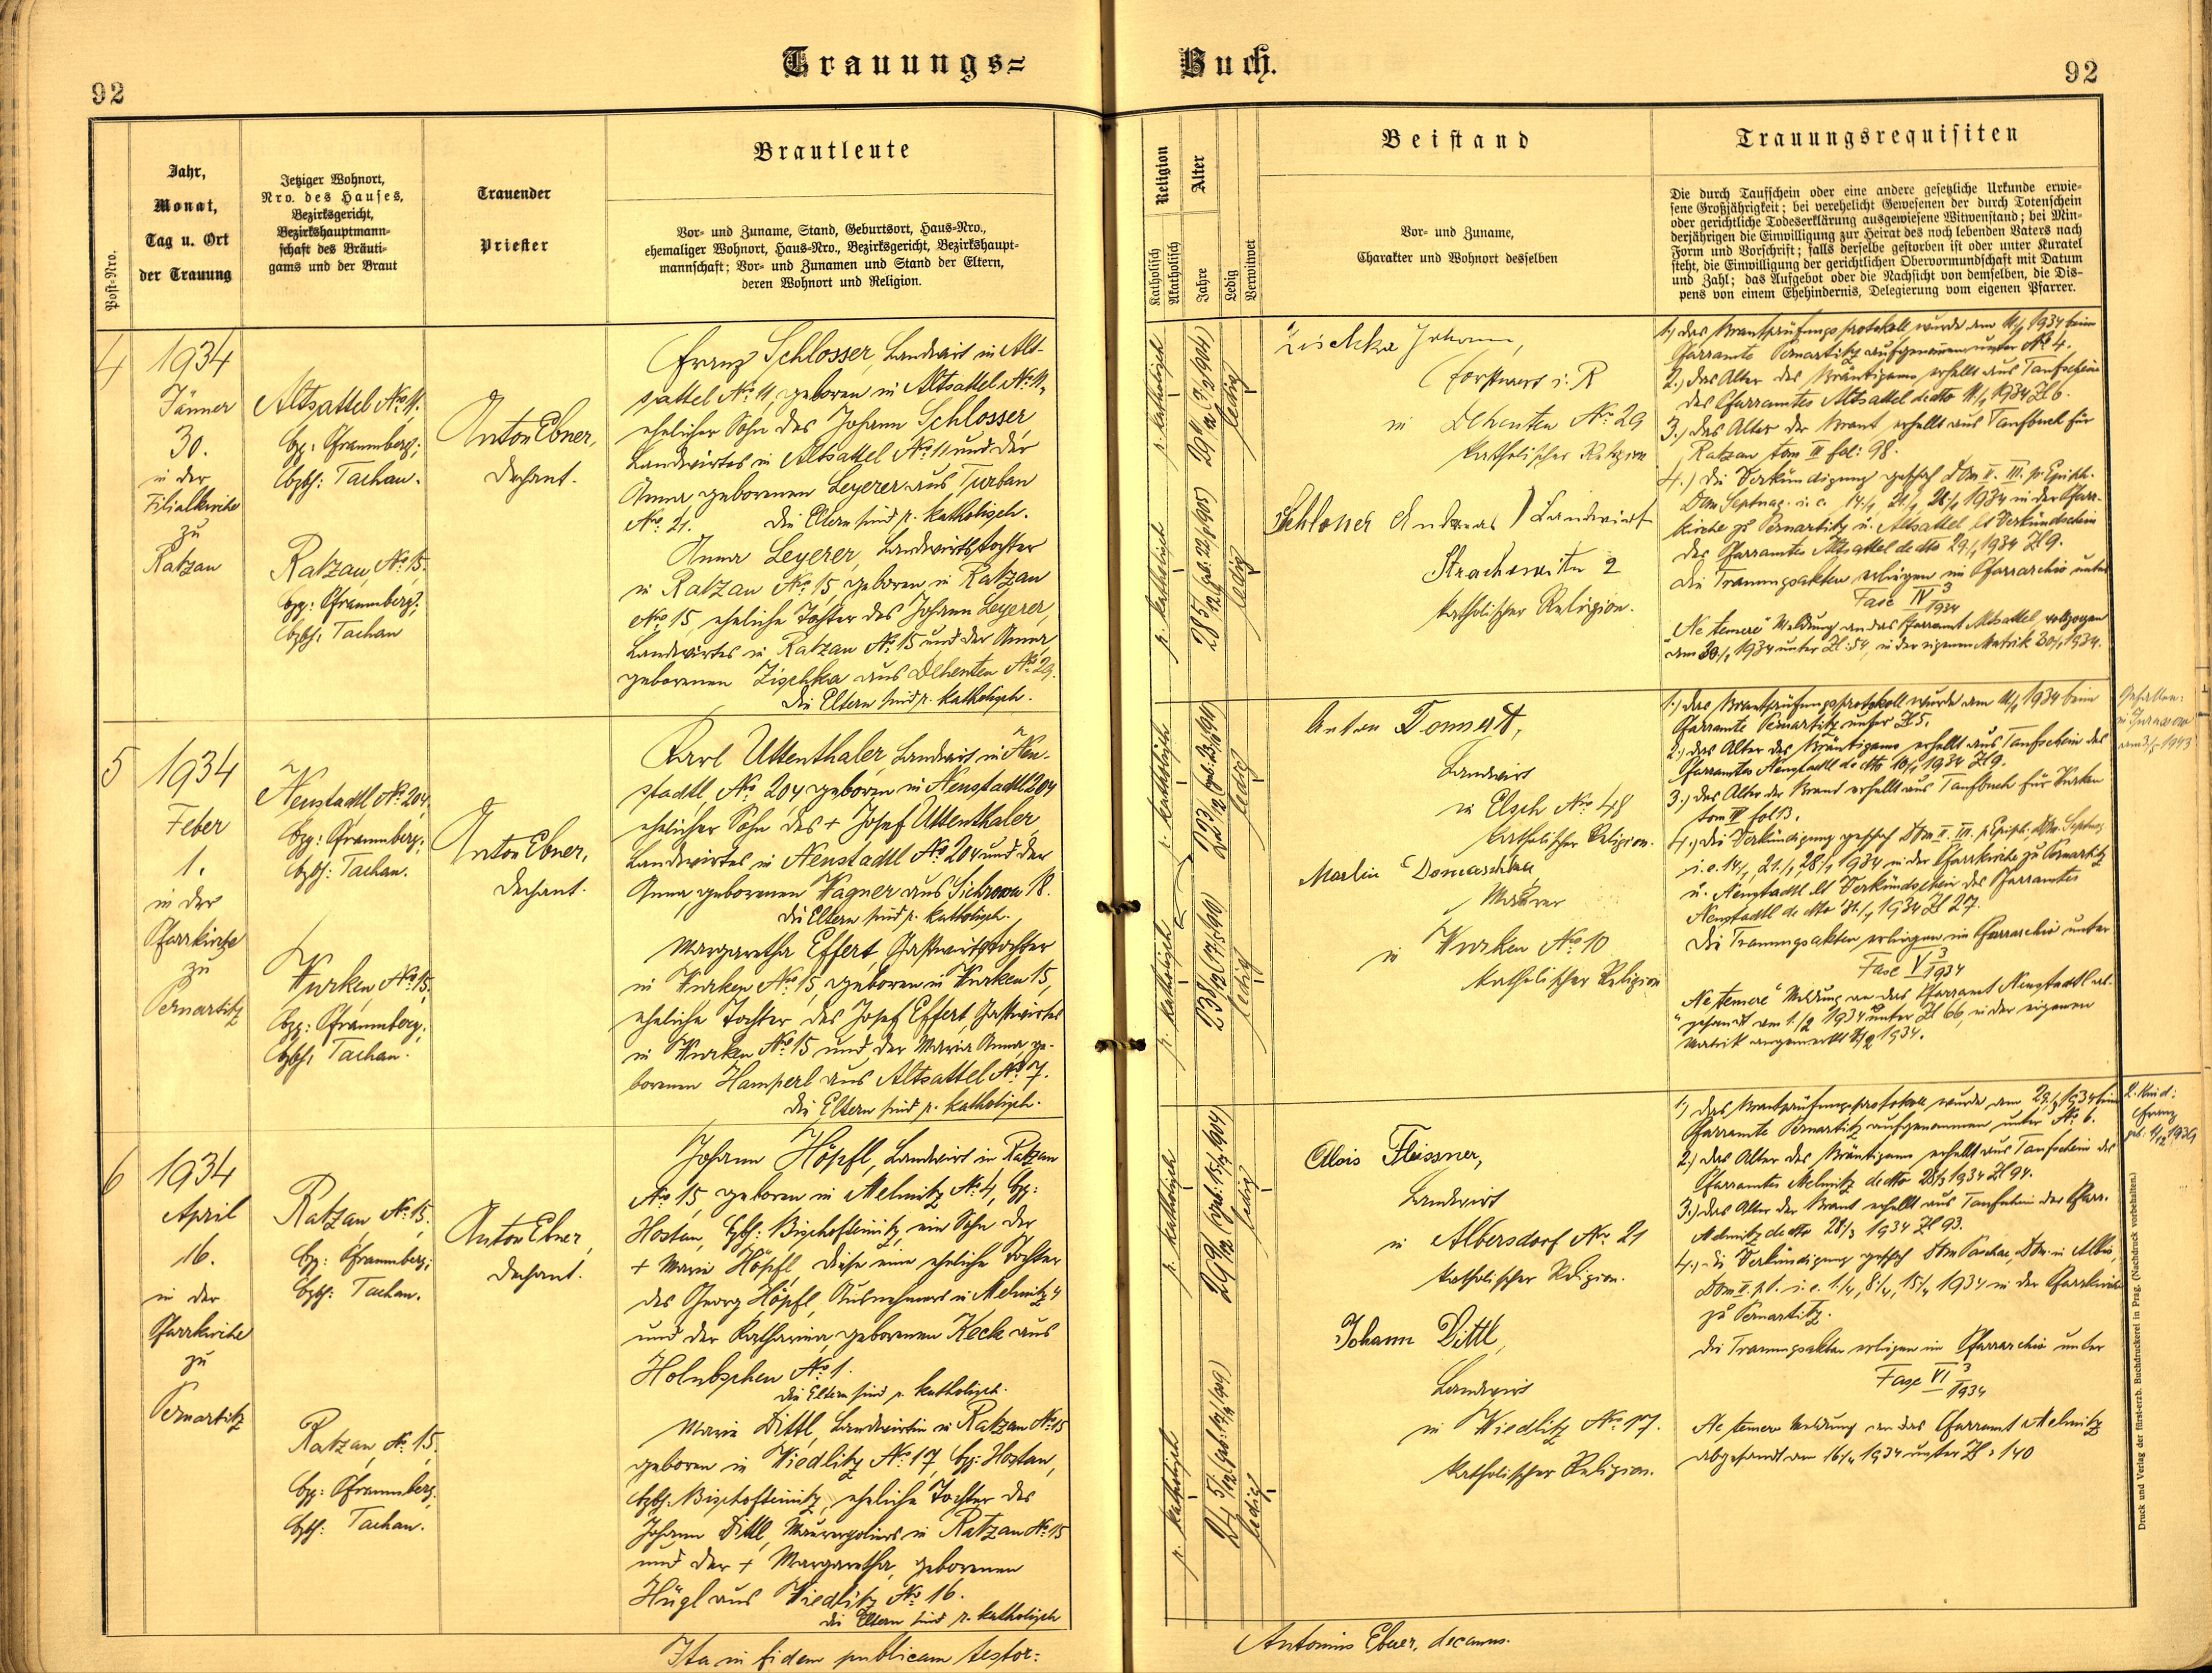 Trauungs=
Buch.
92
92
Post-Nro.
Jahr,
Monat,
Tag u. Ort
der Trauung
Jetziger Wohnort,
Nro. des Hauses,
Bezirksgericht,
Bezirkshauptmann-
schaft des Bräuti-
gams und der Braut
Trauender
Priester
Brautleute
Vor- und Zuname, Stand, Geburtsort, Haus-Nro.,
ehemaliger Wohnort, Haus-Nro., Bezirksgericht, Bezirkshaupt-
mannschaft; Vor- und Zunamen und Stand der Eltern,
deren Wohnort und Religion.
Religion
Katholisch
Akatholisch
Alter
Jahre
Ledig
Verwitwet
Beistand
Vor- und Zuname,
Charakter und Wohnort desselben
Trauungsrequisiten
Die durch Taufschein oder eine andere gesetzliche Urkunde erwie-
sene Großjährigkeit; bei verehelicht Gewesenen der durch Totenschein
oder gerichtliche Todeserklärung ausgewiesene Witwenstand; bei Min-
derjährigen die Einwilligung zur Heirat des noch lebenden Vaters nach
Form und Vorschrift; falls derselbe gestorben ist oder unter Kuratel
steht, die Einwilligung der gerichtlichen Obervormundschaft mit Datum
und Zahl; das Aufgebot oder die Nachsicht von demselben, die Dis-
pens von einem Ehehindernis, Delegierung vom eigenen Pfarrer.
4
1934
Jänner
30.
in der
Filialkirche
zu
Ratzau
Altsattel No. 11.
bzg: Pfraumberg;
bzbh: Tachau.
Ratzau, No. 15.
bzg: Pfraumberg;
bzbh: Tachau
Anton Ebner,
Dechant.
Franz Schlosser, Landwirt in Alt-
sattel No. 11, geboren in Altsattel No. 11,
ehelicher Sohn des Johann Schlosser
Landwirtes in Altsattel No. 11 und der
Anna geborenen Leyerer aus Turban
No. 21. Die Eltern sind r. katholisch.
Anna Leyerer, Landwirtstochter
in Ratzau No. 15, geboren in Ratzau
No. 15, eheliche Tochter des Johann Leyerer,
Landwirtes in Ratzau No. 15 und der Anna,
geborenen Zischka aus Dehenten No. 29.
Die Eltern sind r. katholisch.
r. katholisch
ledig
r. katholisch
ledig
Zischka Johann,
Forstwart i. R
in Dehenten No. 29
katholischer Religion
Schloner Andreas, Landwirt
2
katholischer Religion.
1.) Das Brautprüfungsprotokoll wurde am 11/1 1934 beim
Pfarramte Pernartitz aufgenommen unter No. 4.
2.) Das Alter des Bräutigams erhellt aus Taufschein
des Pfarramtes Altsattel de dto 11/1 1934 Zl 6.
3.) Das Alter der Braut erhellt aus Taufbuch für
Ratzau tom II fol: 98.
4.) Die Verkündigung geschah Dom II. III. p. Epiph.
Dom Septuag. i. e. 14/1, 21/1, 28/1 1934 in der Pfarr-
kirche zu Pernartitz u. Altsattel lt Verkündschein
des Pfarramtes Altsattel de dto 29/1 1934 Zl 9.
Die Trauungsakten erliegen im Pfarrarchiv unter
Fasc IV 3/1934
"Ne temere" Meldung an das Pfarramt Altsattel, vollzogen
am 30/1 1934 unter Zl: 54, in der eigenen Matrik 30/1 1934.
5
1934
Feber
1.
in der
Pfarrkirche
zu
Pernartitz
Neustadtl, No. 204.
bzg: Pfraumberg;
bzbh: Tachau.
Wurken, No. 15.
bzg: Pfraumberg;
bzbh: Tachau.
Anton Ebner,
Dechant.
Karl Uttenthaler, Landwirt in Neu-
stadtl, No. 204 geboren in Neustadtl 204
ehelicher Sohn des + Josef Uttenthaler
Landwirtes in Neustadtl No. 204 und der
Anna, geborenen Wagner aus Sichrowa 18.
Die Eltern sind r. katholisch.
Margaretha Effert, Gastwirtstochter
in Wurken No. 15, geboren in Wurken 15,
eheliche Tochter des Josef Effert, Gastwirtes
in Wurken No. 15 und der Maria Anna, ge-
borenen Hamperl aus Altsattel No. 7.
Die Eltern sind r. katholisch.
r. katholisch
ledig
r. katholisch
ledig
Anton
Landwirt
in Elsch No. 48
katholischer Religion.
Martin Domaschka
Maurer
in Wurken No. 10
katholischer Religion
1.) Das Brautprüfungsprotokoll wurde am 11/1 1934 beim
Pfarramte Pernartitz unter Zl 5.
2.) Das Alter des Bräutigams erhellt aus Taufschein des
Pfarramtes Neustadtl de dto 10/1 1934 Zl 9.
3.) Das Alter der Braut erhellt aus Taufbuch für Wurken
tom IV fol 13.
4.) Die Verkündigung geschah Dom II. III. p Epiph. Dom. Septuag
i. e. 14/1, 21/1, 28/1 1934 in der Pfarrkirche zu Pernartitz
u. Neustadtl lt Verkündschein des Pfarramtes
Neustadtl de dto 31/1 1934 Zl 27.
Die Trauungsakten erliegen im Pfarrarchiv unter
Fasc V 3/1934
"Ne temere" Meldung an das Pfarramt Neustadtl ab-
gesandt am 1/2 1934 unter Zl 66, in der eigenen
Matrik angemerkt 1/2 1934.
Gefallen:
1943
6
1934
April
16.
in der
Pfarrkirche
zu
Pernartitz
Ratzau, No. 15.
bzg: Pfraumberg;
bzbh: Tachau.
Ratzau, No. 15.
bzg: Pfraumberg.
bzbh: Tachau.
Anton Ebner,
Dechant.
Johann Höpfl, Landwirt in Ratzau
No. 15, geboren in Melmitz No. 4, bzg:
Hostau, bzbh: Bischofteinitz, ein Sohn der
+ Marie Höpfl, diese eine eheliche Tochter
des Georg Höpfl, Ausnehmers in Melmitz 4
und der Katharina, geborenen Keck aus
Holubschen No. 1.
Die Eltern sind r. katholisch.
Marie Dittl, Landwirtin in Ratzau No. 15
geboren in Wiedlitz No. 17, bzg: Hostau,
bzbh. Bischofteinitz, eheliche Tochter des
Johann Dittl, Maurerpoliers in Ratzau No. 15
und der + Margaretha, geborenen
Hügl aus Wiedlitz No. 16.
Die Eltern sind r. katholisch
r. katholisch
ledig
r. katholisch
ledig
Alois Fleissner,
Landwirt
in Albersdorf No. 21
katholischer Religion.
Johann Dittl,
Landwirt
in Wiedlitz No. 17.
katholischer Religion.
1.) Das Brautprüfungsprotokoll wurde am 29/3 1934 beim
Pfarramte Pernartitz aufgenommen unter No. 6.
2.) Das Alter des Bräutigams erhellt aus Taufschein des
Pfarramtes Melmitz de dto 28/3 1934 Zl 94.
3.) Das Alter der Braut erhellt aus Taufschein der Pfarr.
Melmitz de dto 28/3 1934 Zl 93.
4.) Die Verkündigung geschah Dom Paschae, Dom. in Albis,
Dom II. p. P. i. e. 1/4, 8/4, 15/4 1934 in der Pfarrkirche
zu Pernartitz.
Die Trauungsakten erliegen im Pfarrarchiv unter
Fasc VI 3/1934
Ne temere Meldung an das Pfarramt Melmitz
abgesandt am 16/4 1934 unter Zl: 140
2. Kind:
Franz
geb. 4/12 1939
Druck und Verlag der fürst-erzb. Buchdruckerei in Prag. (Nachdruck vorbehalten.)
Ita in fidem publicam testor:
Antonius Ebner, decanus.